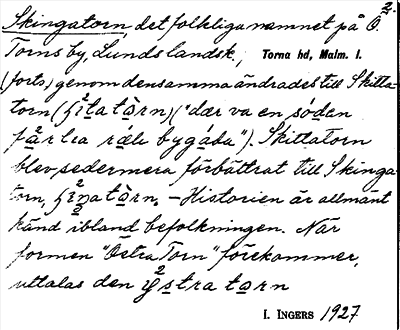 2.
Skingatorn, det folkliga namnet på Ö.
Torns by, Lunds landsk., Torna hd, Malm. l.
(forts.) genom densamma ändrades till Skitta-
torn ("dær va en sódan
bygáda"). Skittatorn
blev sedermera förbättrat till Skinga-
torn, – Historien är allmänt
känd ibland befolkningen. När
formen "Östra Torn" förekommer,
uttalas den ystra torn
I. INGERS 1927